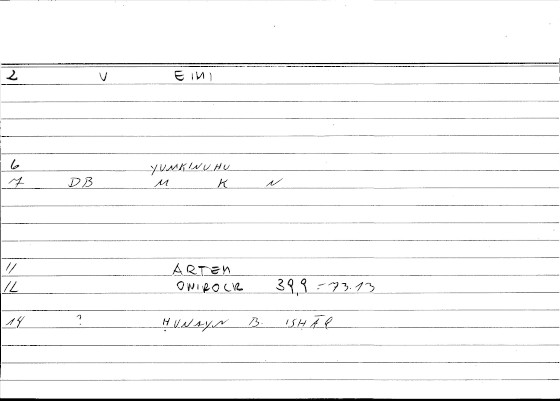 2 V EINI
6 YUMKINUHU
7 DB M K N
11 ARTEM
12 ONIROCR 39,9 = 73.13
14 ? ḤUNAYN B. ISḤĀQ